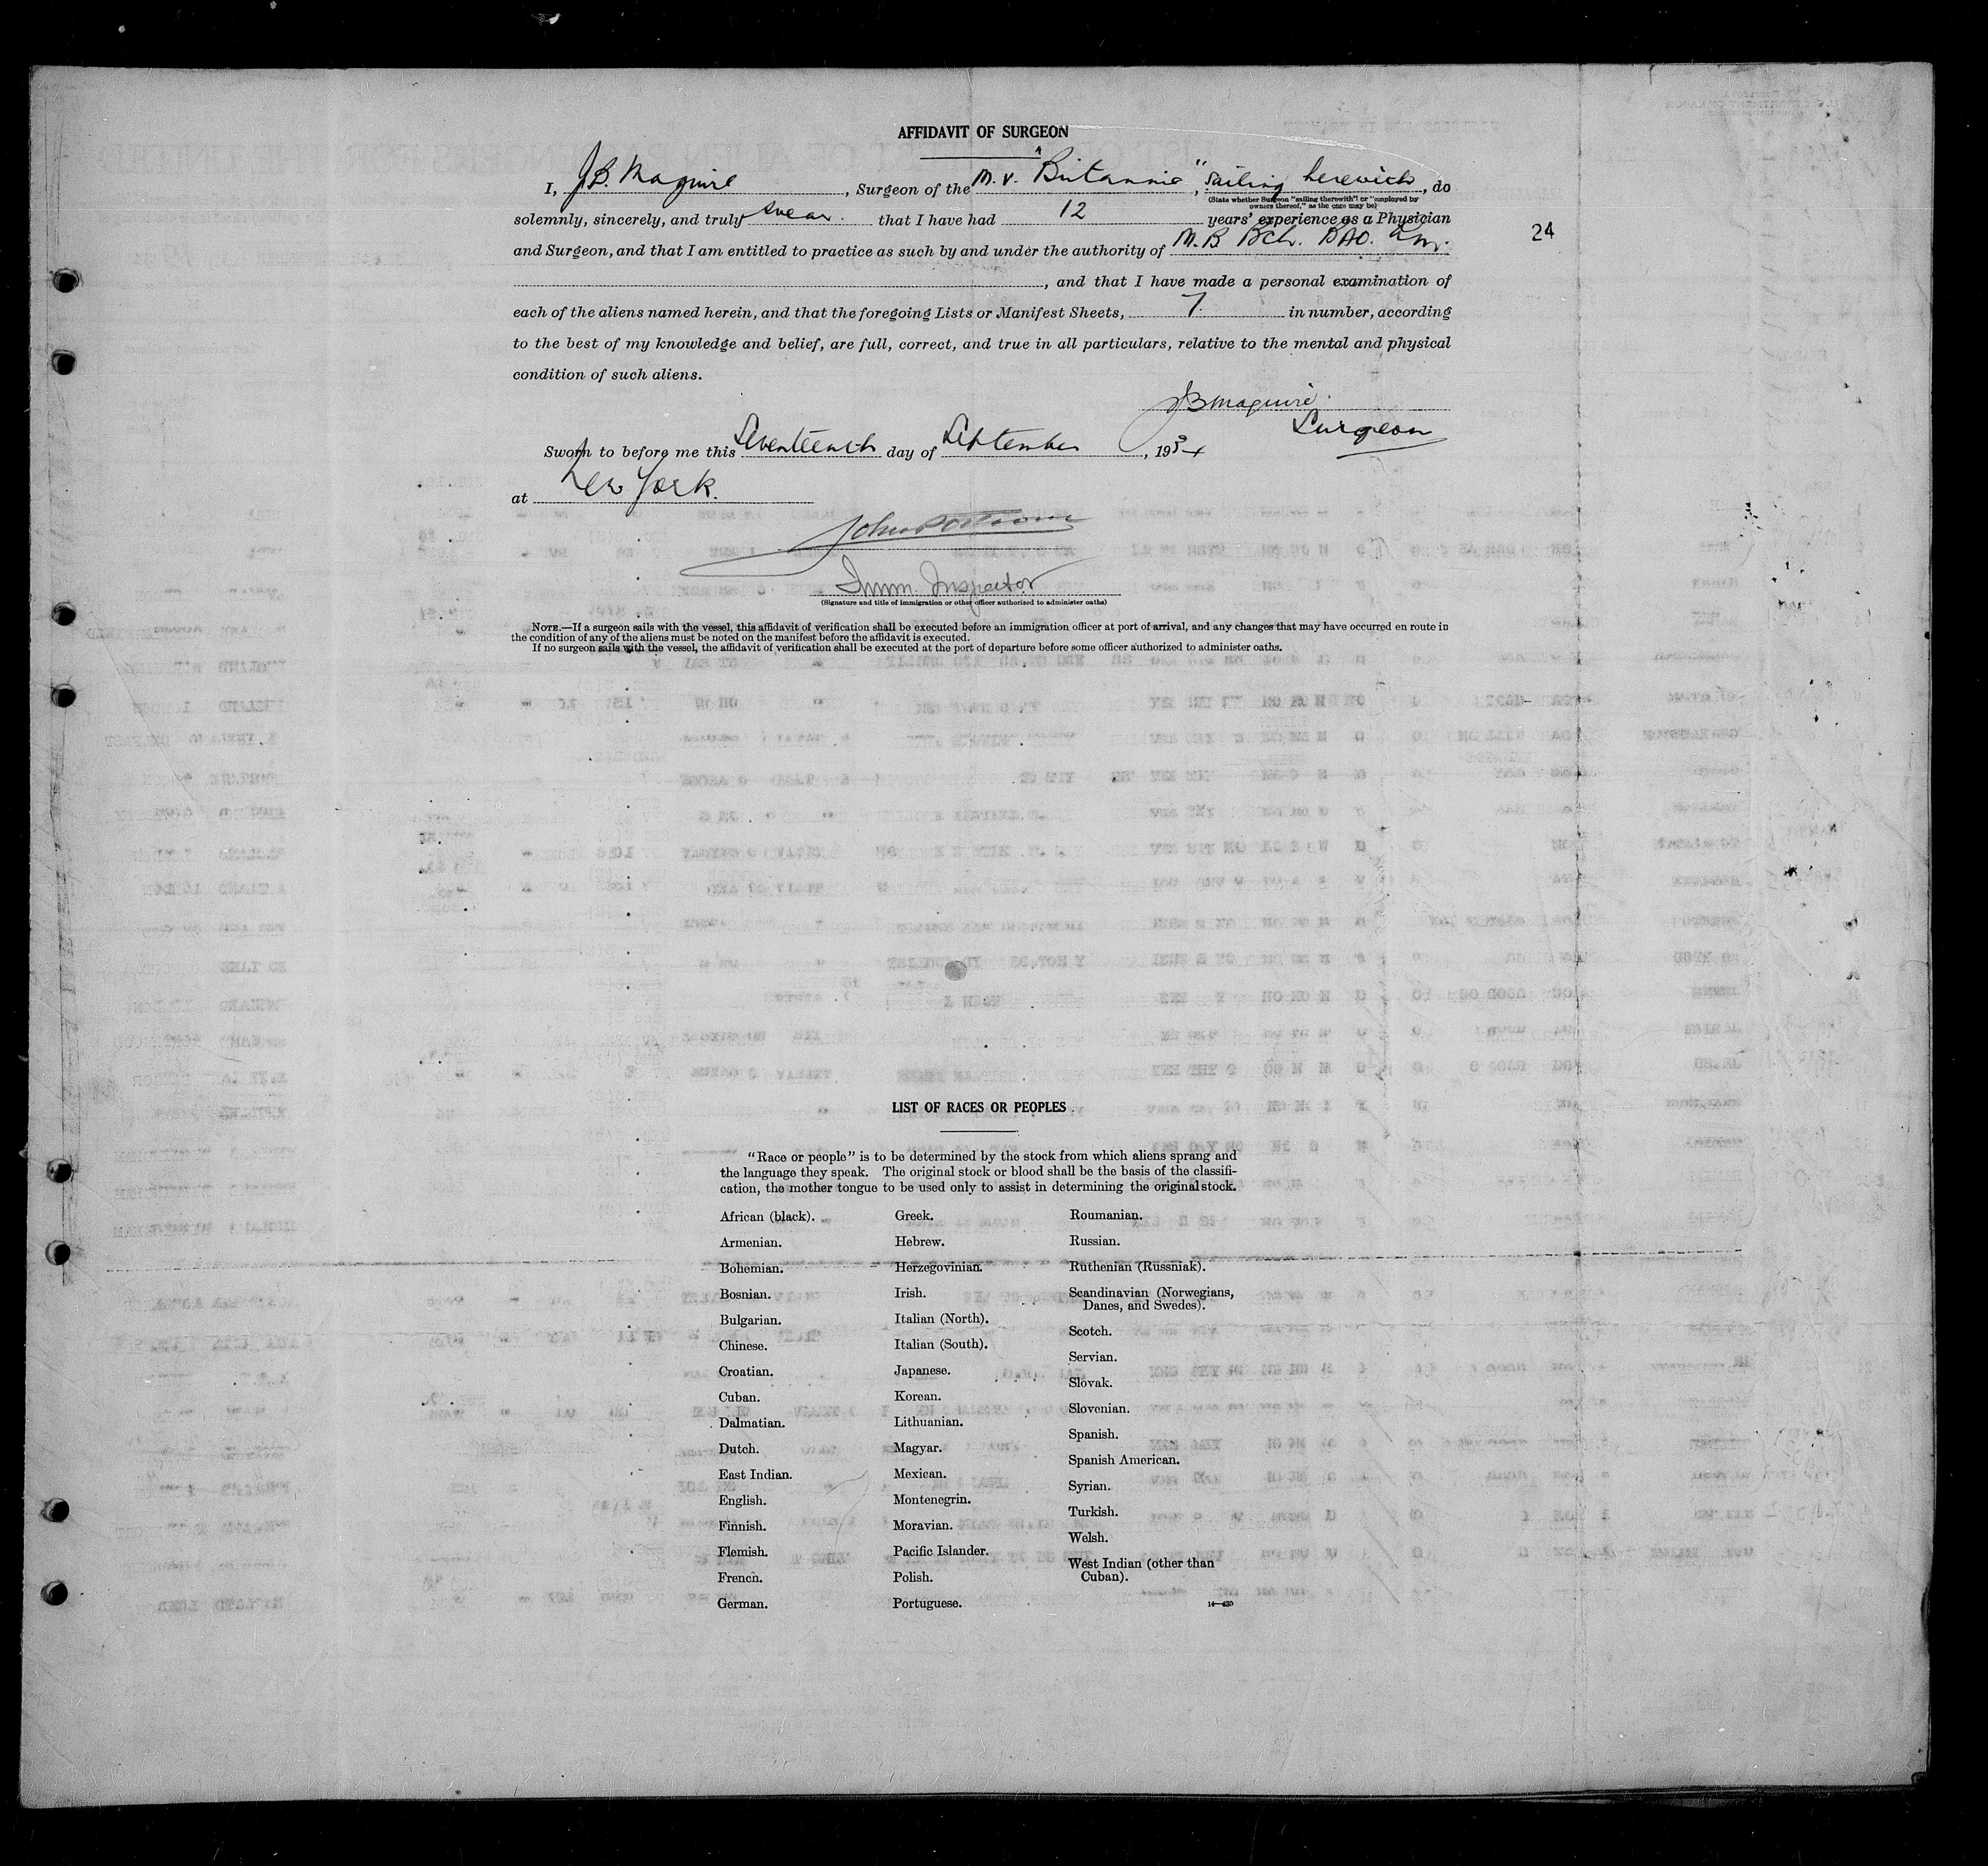 AFFIDAVIT OF SURGEON
I, J.B. Maguire, Surgeon of the M.V. "Britannic", sailing herewith, do
(State whether Surgeon "sailing therewith" or "employed by
owners thereof," as the case may be)
solemnly, sincerely, and truly swear. that I have had 12 years' experience as a Physician
24
and Surgeon, and that I am entitled to practice as such by and under the authority of M.B BCh. BAO.
, and that I have made a personal examination of
each of the aliens named herein, and that the foregoing Lists or Manifest Sheets, 7. in number, according
to the best of my knowledge and belief, are full, correct, and true in all particulars, relative to the mental and physical
condition of such aliens.
JB Maguire.
Surgeon
Sworn to before me this Seventeenth day of September, 1934
at New York.
Imm. Inspector
(Signature and title of immigration or other officer authorized to administer oaths)
NOTE.—If a surgeon sails with the vessel, this affidavit of verification shall be executed before an immigration officer at port of arrival, and any changes that may have occurred en route in
the condition of any of the aliens must be noted on the manifest before the affidavit is executed.
If no surgeon sails with the vessel, the affidavit of verification shall be executed at the port of departure before some officer authorized to administer oaths.
LIST OF RACES OR PEOPLES
"Race or people" is to be determined by the stock from which aliens sprang and
the language they speak. The original stock or blood shall be the basis of the classifi-
cation, the mother tongue to be used only to assist in determining the original stock.
African (black).
Armenian.
Bohemian.
Bosnian.
Bulgarian.
Chinese.
Croatian.
Cuban.
Dalmatian.
Dutch.
East Indian.
English.
Finnish.
Flemish.
French.
German.
Greek.
Hebrew.
Herzegovinian.
Irish.
Italian (North).
Italian (South).
Japanese.
Korean.
Lithuanian.
Magyar.
Mexican.
Montenegrin.
Moravian.
Pacific Islander.
Polish.
Portuguese.
Roumanian.
Russian.
Ruthenian (Russniak).
Scandinavian (Norwegians,
Danes, and Swedes).
Scotch.
Servian.
Slovak.
Slovenian.
Spanish.
Spanish American.
Syrian.
Turkish.
Welsh.
West Indian (other than
Cuban).
14—430